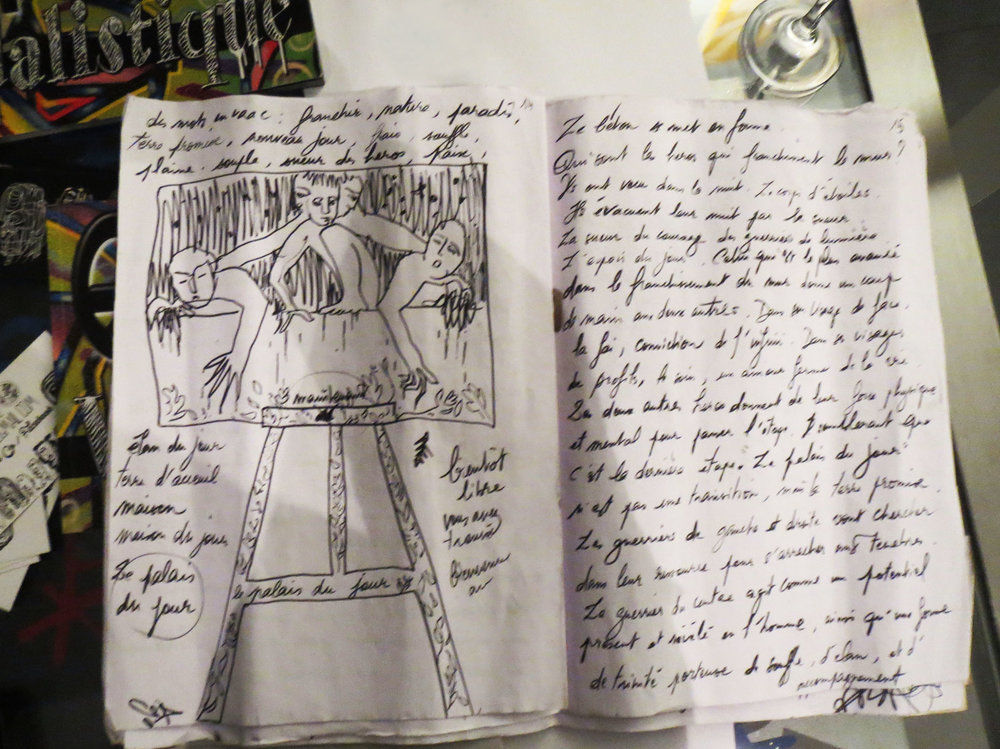 alistique
des mots en vrac : franchir, nature, paradis,
terre promise, nouveau jour, frais, souffle,
plaine, souple, sueur des heros, Paix,
maintenant
elan du jour
terre d'accueil
maison
maison du jour
Le palais
du jour
bientôt
libre
vous avez
trouvé
le palais du jour
15
Le béton se met en forme.
Qui sont les heros qui franchissent le mur ?
Ils ont vécu dans la nuit. Le corps d'étoiles.
Ils évacuent leur nuit par la sueur.
La sueur du courage des guerriers de lumière
Celui qui est le plus avancé
dans le franchissement du mur donne un coup
de main aux deux autres. Dans son visage de face,
la foi, conviction de l'infini. Dans ses visages
de profils, le soin, un amour ferme de la vie.
Les deux autres heros donnent de leur force physique
et mental pour passer l'étape. Il semblerait que
c'est la dernière étape. "Le palais du jour"
n'est pas une transition, mais la terre promise.
Les guerriers de gauche et droite vont chercher
dans leur ressource pour s'arracher aux tenebres.
Le guerrier du centre agit comme un potentiel
présent et révélé en l'homme, ainsi qu'une forme
de trinité porteuse de souffle, d'elan, et d'
accompagnement